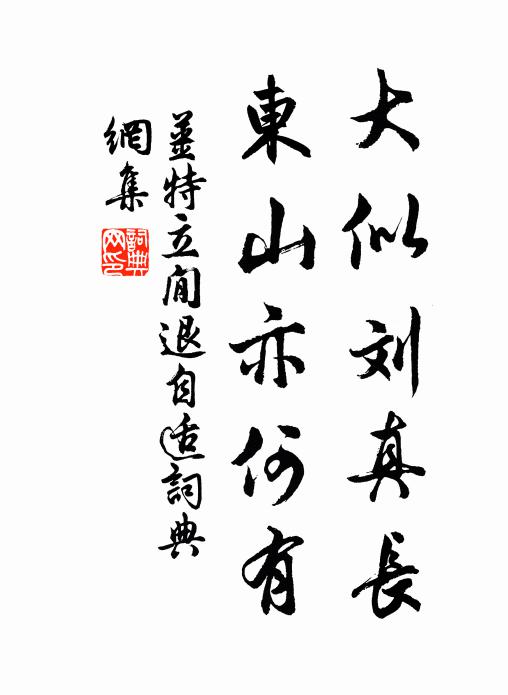 大似刘真長
東山亦何有
姜特立閒退自适詞典
網集
詞典网印